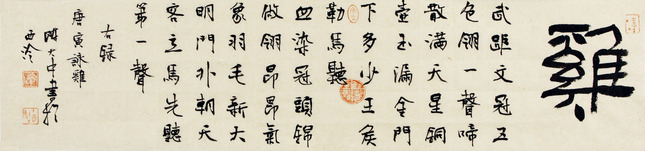 雞
武距文冠五
色翎一聲啼
散滿天星銅
壺玉漏金門
下多少王侯
勒馬聽
血染冠頭錦
做翎昂昂氣
象羽毛新大
明門外朝天
客立馬先聽
第一聲
右錄
唐寅詠雞
大中書於
西泠